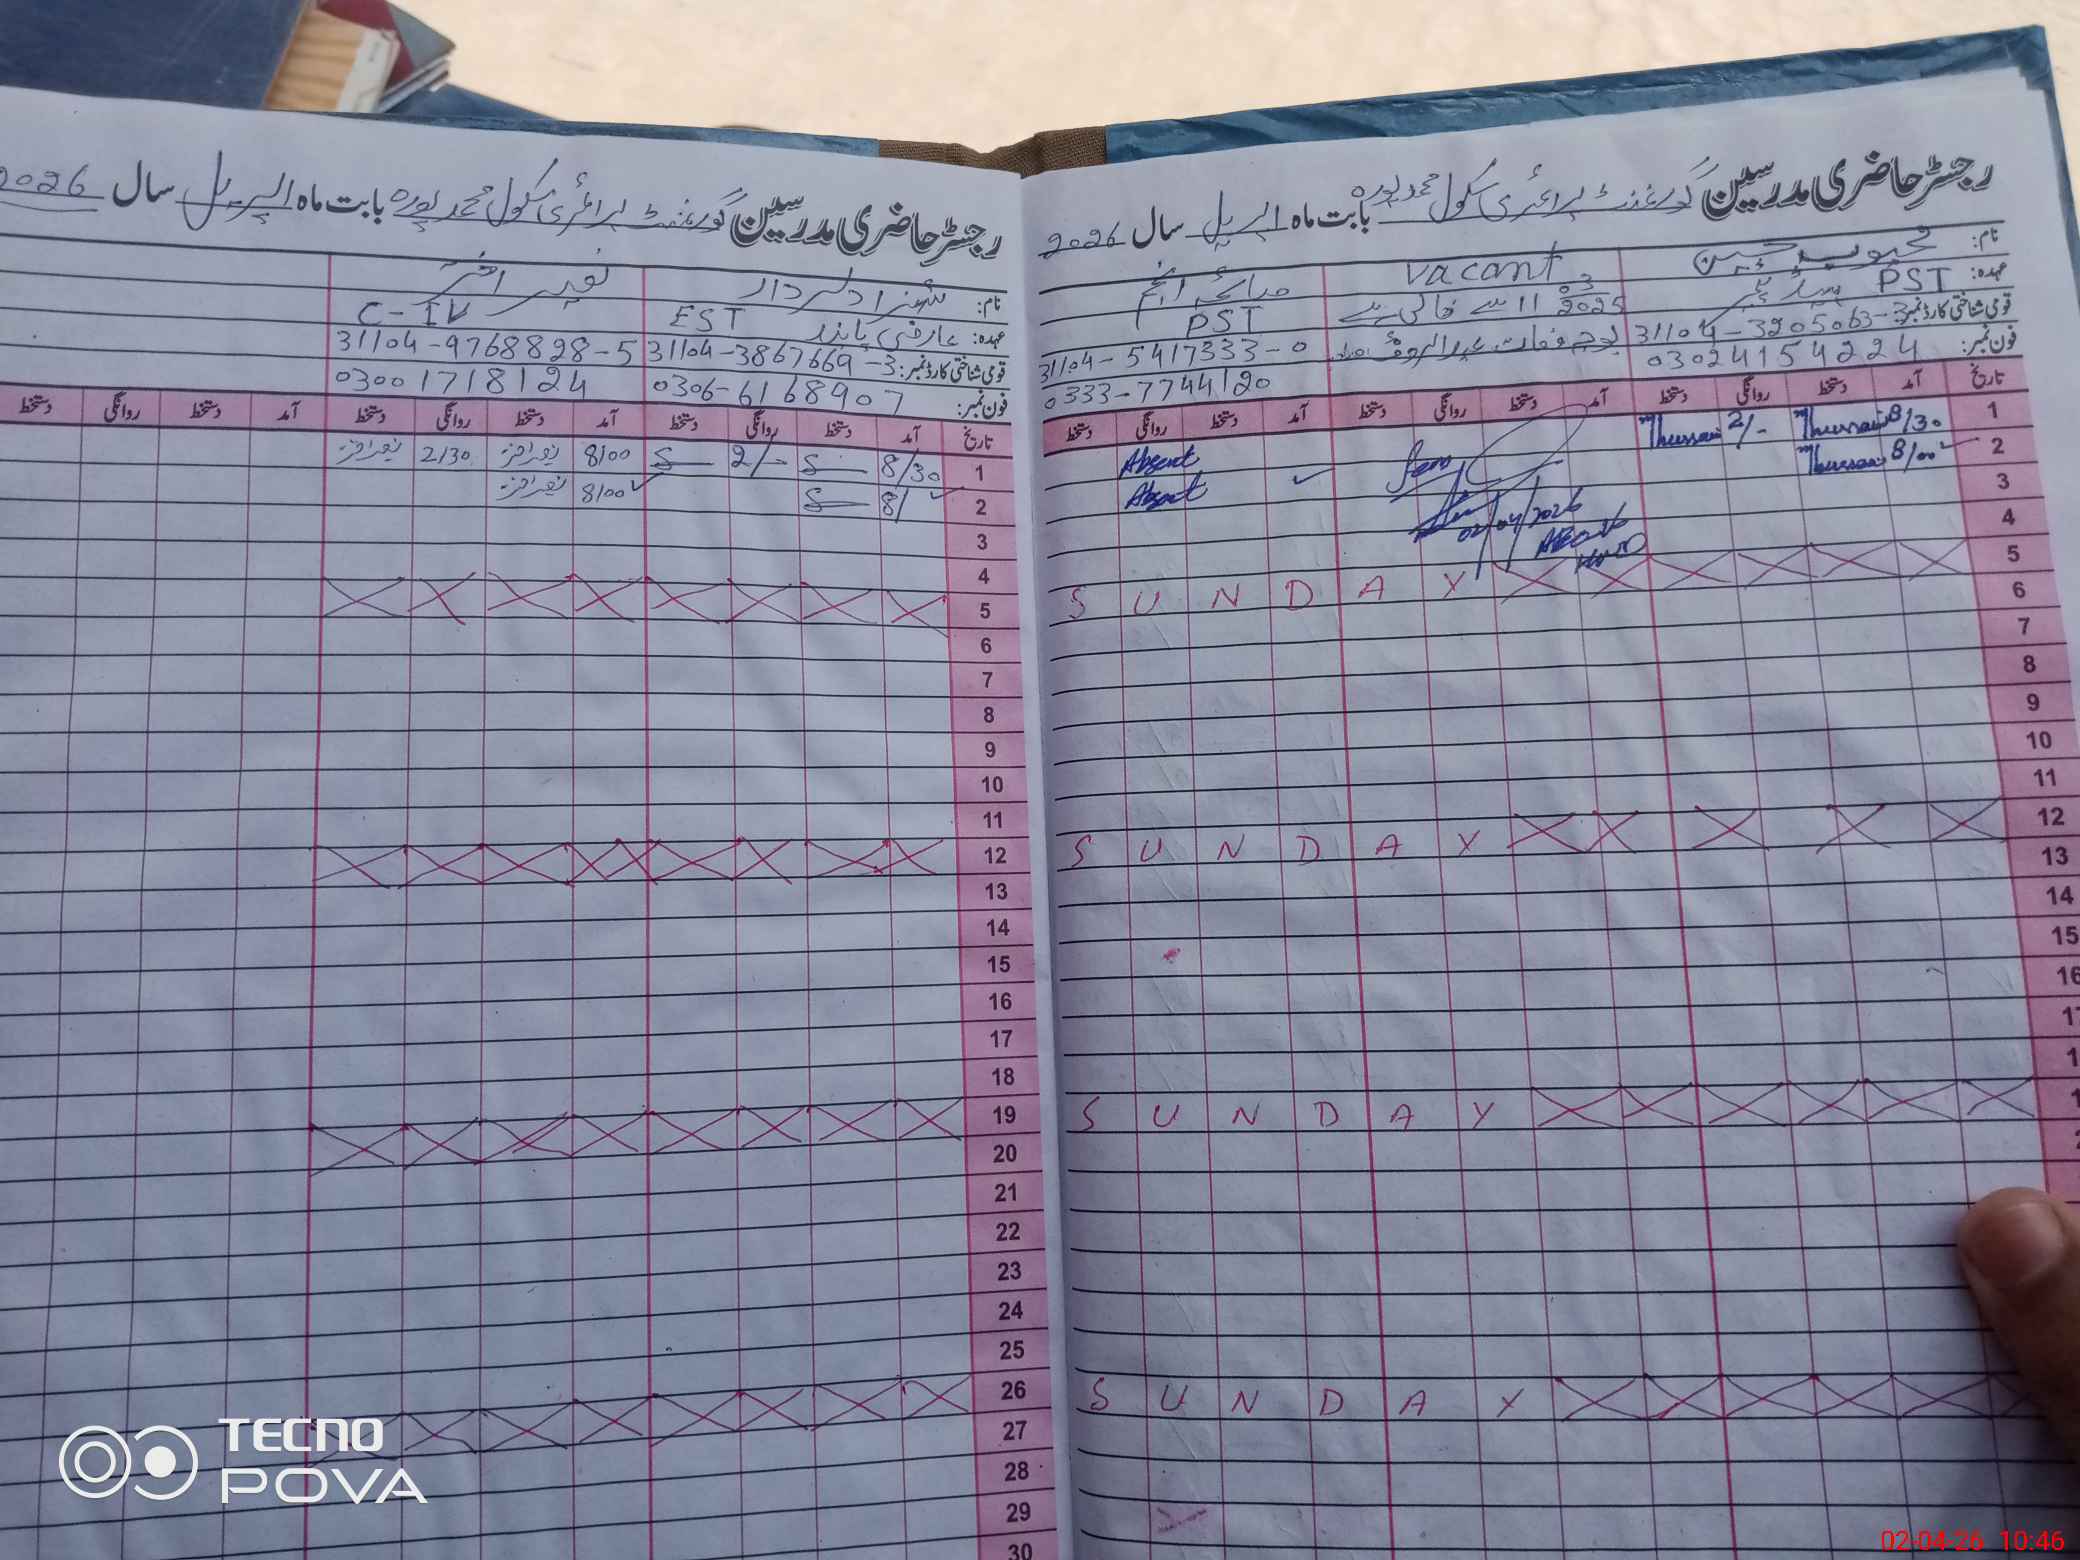 رجسٹر حاضری مدرسین گورنمنٹ پرائمری سکول محمد پورہ بابت ماہ اپریل سال 2026
نام: محبوب حسین
vacant
صائمہ انجم
عہدہ: PST ہیڈ ٹیچر
11 03 2025 سے خالی ہے
PST
قومی شناختی کارڈ نمبر: 31104-3205063-3
بوجہ وفات عبدالرؤف
31104-5417333-0
فون نمبر: 03024154224
0333-7744120
تاریخ آمد دستخط روانگی دستخط آمد دستخط روانگی دستخط آمد دستخط روانگی دستخط
1 8/30 Mhussain 2/- Mhussain Absent
2 8/00 Mhussain Absent
02/04/2026
3
4
5 SUNDAY
6
7
8
9
10
11
12 SUNDAY
13
14
15
16
SUNDAY
SUNDAY
رجسٹر حاضری مدرسین گورنمنٹ پرائمری سکول محمد پورہ بابت ماہ اپریل سال 2026
نام: شہزاد سردار
نصیر اختر
عہدہ: عارضی EST
C-IV
قومی شناختی کارڈ نمبر: 31104-3867669-3
31104-9768828-5
فون نمبر: 0306-6168907
03001718124
تاریخ آمد دستخط روانگی دستخط آمد دستخط روانگی دستخط آمد دستخط روانگی دستخط
1 8/30 2/- 8/00 نصیر اختر 2/30 نصیر اختر
2 8/ 8/00 نصیر اختر
3
4
5
6
7
8
9
10
11
12
13
14
15
16
17
18
19
20
21
22
23
24
25
26
27
28
29
30
TECNO
POVA
02-04-26 10:46